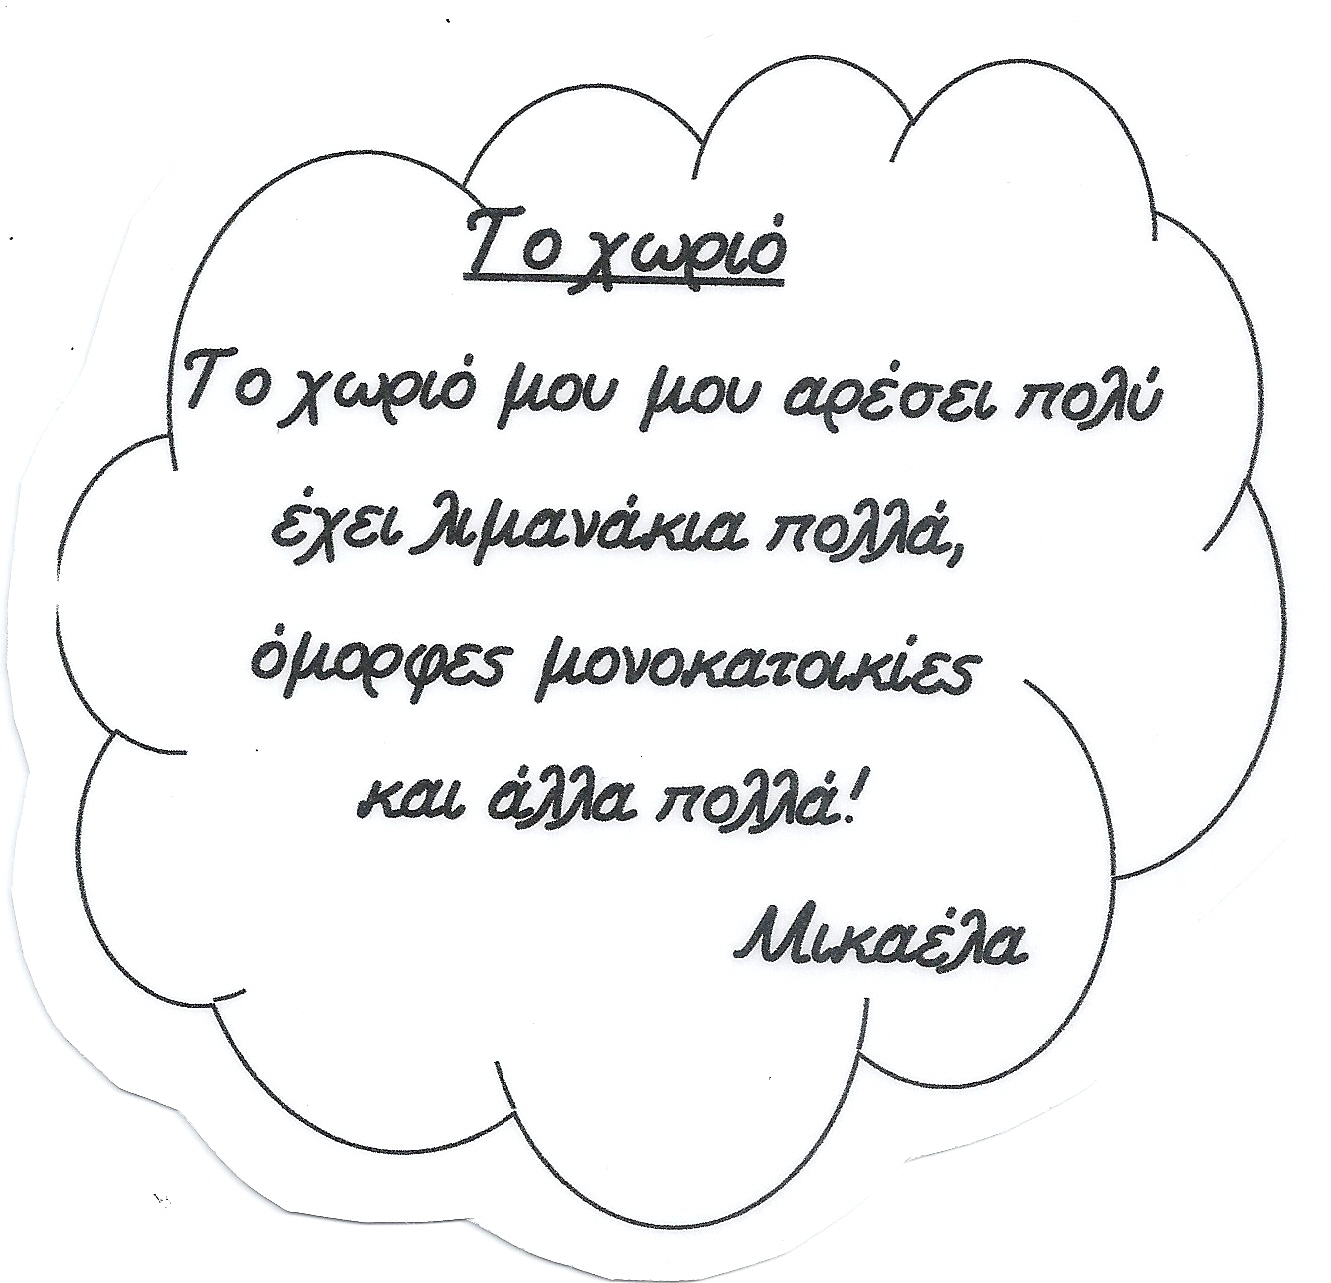 Το χωριό
Το χωριό μου μου αρέσει πολύ
έχει λιμανάκια πολλά,
όμορφες μονοκατοικίες
και άλλα πολλά!
Μικαέλα